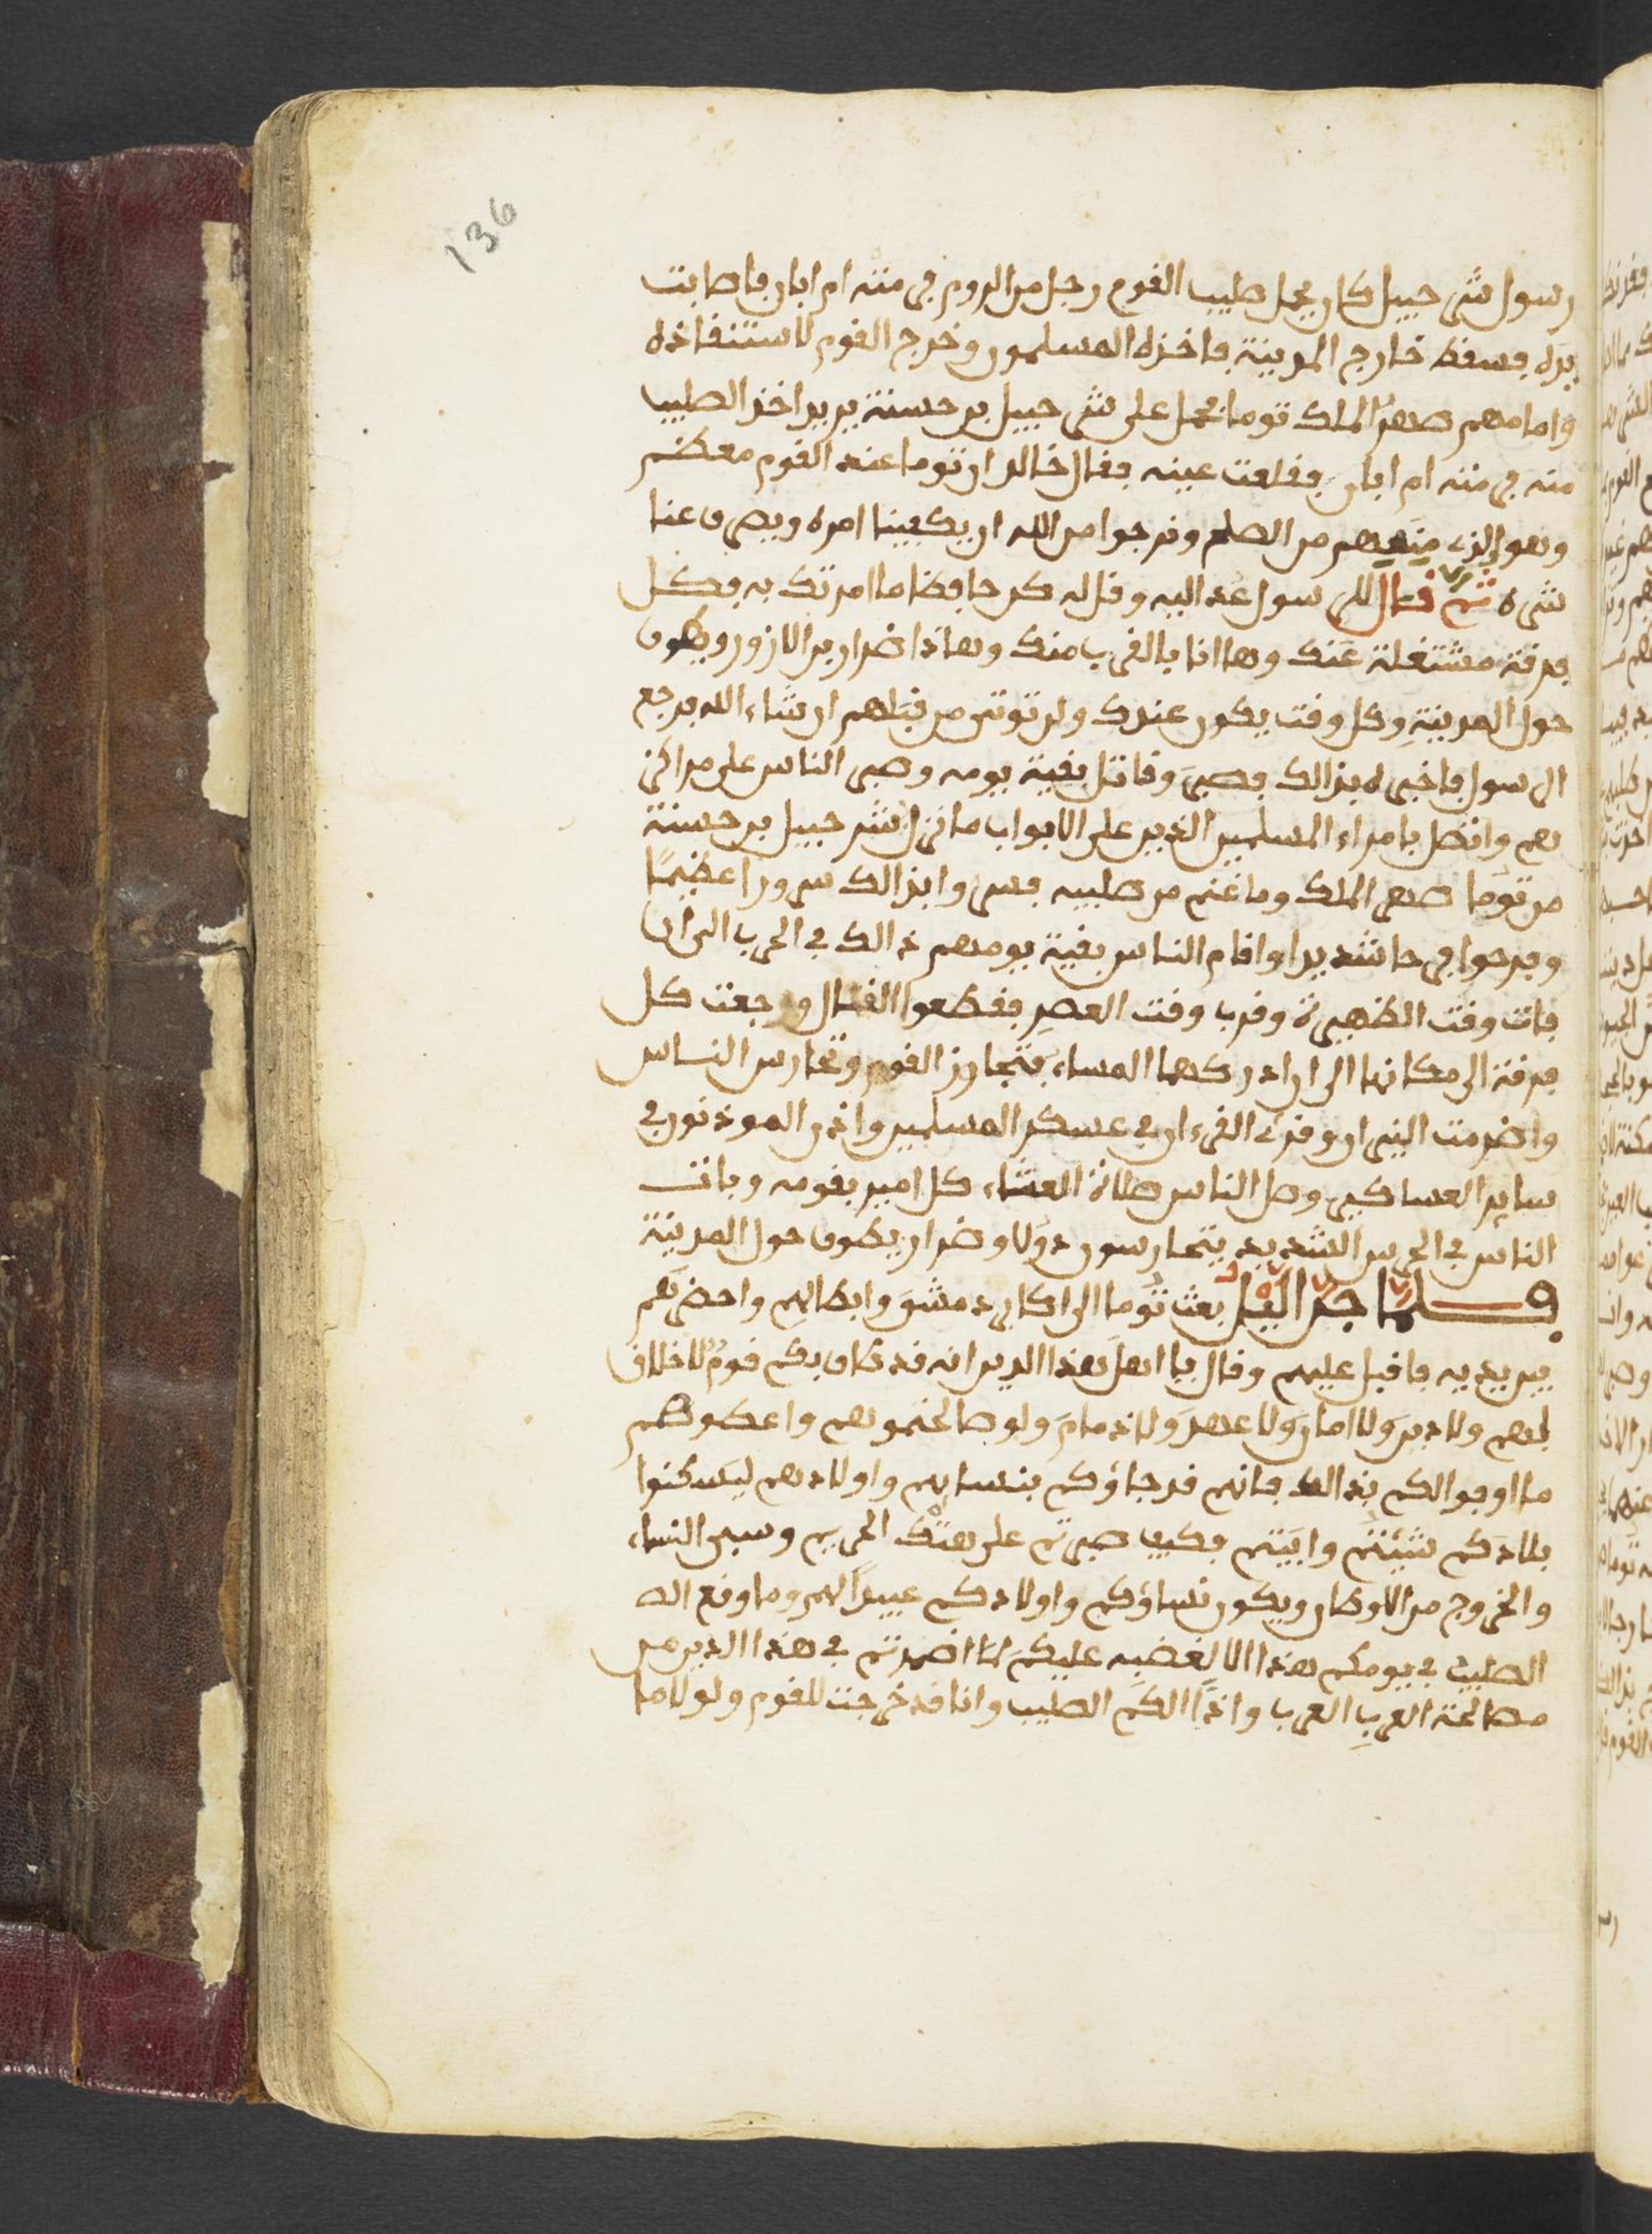 136
رسول شرحبيل كان يحمل صليب القوم رجل من الروم فرمته ام ابان فاصابت
يده فسقط خارج المدينة فاخذه المسلمون وخرج القوم لاستنفاذه
وامامهم صهر الملك توما فحمل على شرحبيل بن حسنة يريد اخذ الصليب
منه فرمته ام ابان ففلعت عينه فقال خالد ان توما عند القوم معظم
وهو الذي منعهم من الصلح ونرجوا من الله ان يكفينا امره ويصرف عنا
شره ثم قال للرسول عد اليه وقل له كن حافظا ما امرتك به فكل
فرقة مشتغلة عنك وها انا بالقرب منك وهاذا ضرار بن الازور ويطوف
حول المدينة وكل وقت يكون عندك ولن توتى من قبلهم ان شاء الله فرجع
الرسول فاخبره بذالك فصبر وقاتل بقية يومه وصبر الناس على مراكز
هم واتصل بامراء المسلمين الذين على الابواب ما نزل بشرحبيل بن حسنة
من توما صهر الملك وما غنم من صليبه فسروا بذالك سرورا عظيمًا
وفرحوا فرحا شديدا واقام الناس بقية يومهم ذالك في الحرب الى ان
فات وقت الظهيرة وقرب وقت العصر فقطعوا القتال ورجعت كل
فرقة الى مكانها الى ان ادركها المساء فتجاوز القوم وتحارس الناس
واضرمت النيران وقرئ القرءان في عسكر المسلمين واذن الموذنون في
ساير العساكير وصل الناس صلاة العشاء كل امير بقومه وباتت
الناس في الحرس الشديد يتحارسون دولا وضرار يطوف حول المدينة
فلما جن اليل بعث توما الى اكابر دمشق وابطالهم واحضرهم
بين يديه فاقبل عليهم وقال يا اهل هذا الدين انه قد طاف بكم قوم لا خلاق
لهم ولا دين ولا امان ولا عهد ولا ذمام ولو صالحتموهم واعطوكم
ما اوفوا لكم بذالك فانهم قد جاؤكم بنسايهم واولادهم ليسكنوا
بلادكم شيئتم وابيتم فكيف صبرتم على هتك الحريم وسبي النساء
والخروج من الاوطان ويكون نساؤكم واولادكم عبيدا لهم وما وقع اله
الصليب في يومكم هذا الا لغضبه عليكم لما اضمرتم في هذا الدين من
مصالحة العرب العرب واذا لكم الصليب وانا قد خرجت للقوم ولولا ما